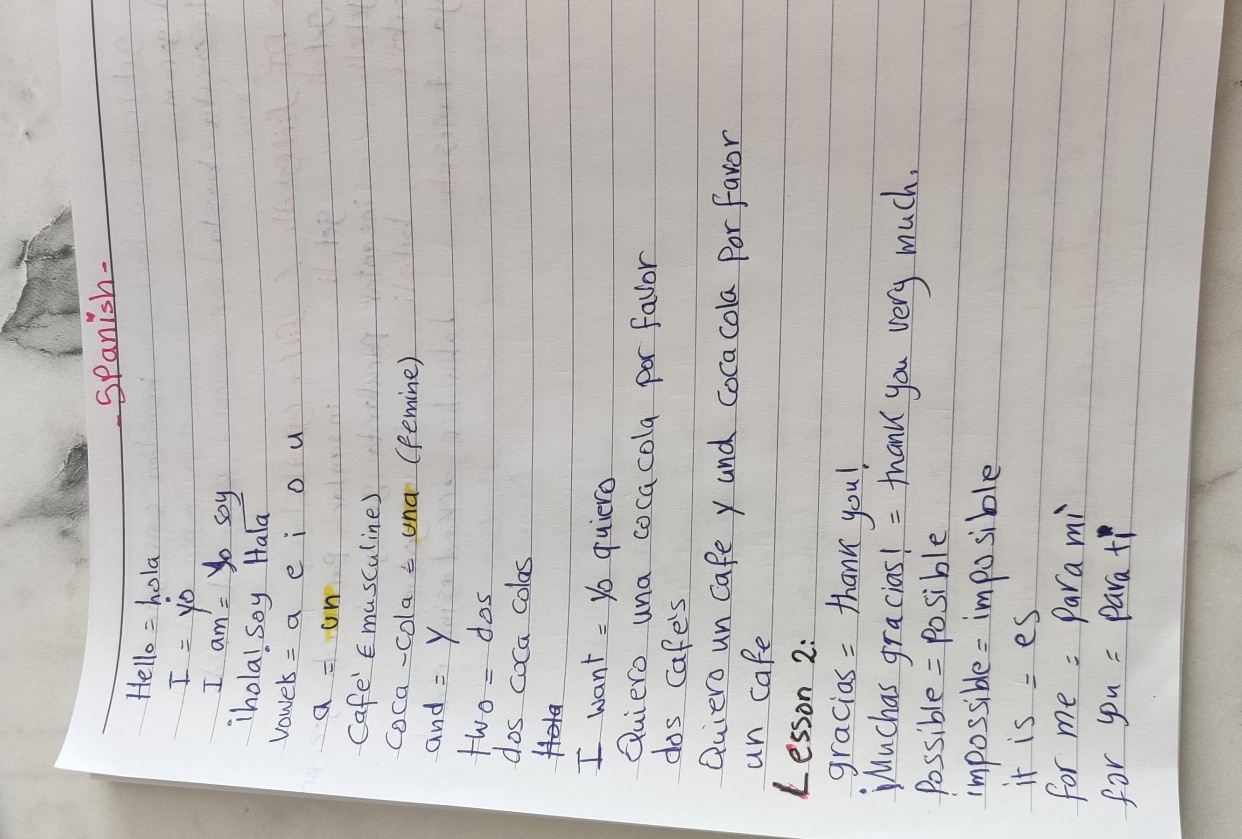 - Spanish -
Hello = hola
I = yo
I am = yo soy
¡hola! soy Hala
vowels = a e i o u
a = un
café (masculine)
coca-cola = una (femine)
and = y
two = dos
dos coca colas
Hola
I want = yo quiero
Quiero una coca cola por favor
dos cafe's
Quiero un cafe y und coca cola por favor
un cafe
Lesson 2:
gracias = thank you!
¡Muchas gracias! = thank you very much.
Possible = posible
impossible = imposible
it is = es
for me = para mì
for you = para ti